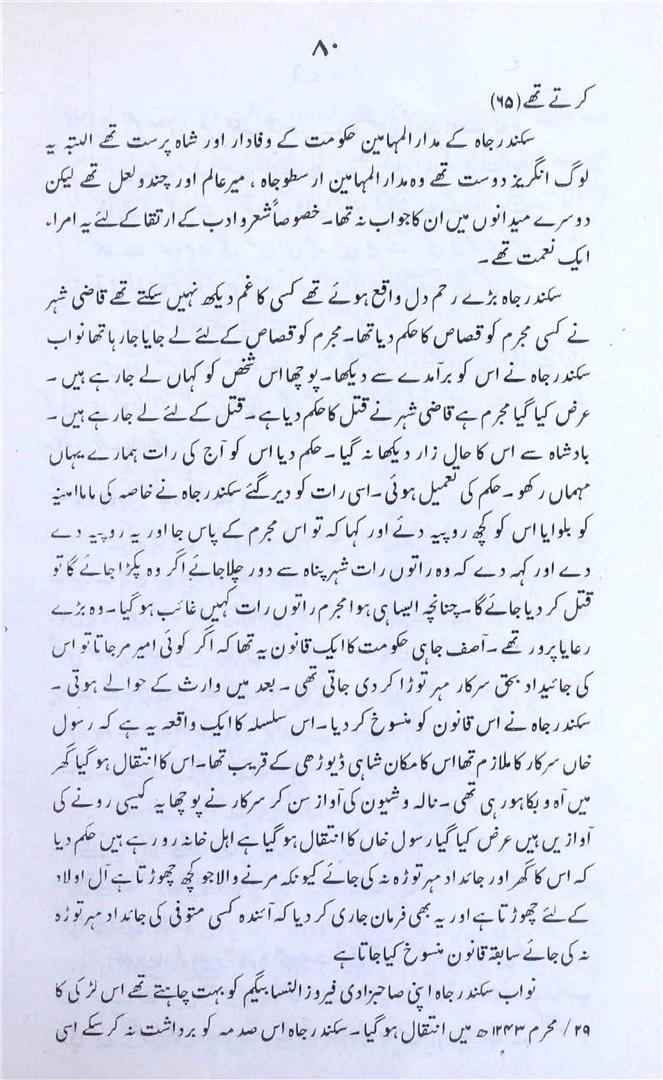 ۸۰
کرتے تھے (۶۵)
سکندر جاہ کے مدارالمہامین حکومت کے وفادار اور شاہ پرست تھے البتہ یہ
لوگ انگریز دوست تھے وہ مدارالمہامین ارسطو جاہ ، میر عالم اور چندو لعل تھے لیکن
دوسرے میدانوں میں ان کا جواب نہ تھا۔ خصوصاً شعر و ادب کے ارتقا کے لئے یہ امراء
ایک نعمت تھے۔
سکندر جاہ بڑے رحم دل واقع ہوئے تھے کسی کا غم دیکھ نہیں سکتے تھے قاضی شہر
نے کسی مجرم کو قصاص کا حکم دیا تھا۔ مجرم کو قصاص کے لئے لے جایا جا رہا تھا نواب
سکندر جاہ نے اس کو برآمدے سے دیکھا۔ پوچھا اس شخص کو کہاں لے جا رہے ہیں ۔
عرض کیا گیا مجرم ہے قاضی شہر نے قتل کا حکم دیا ہے۔ قتل کے لئے لے جا رہے ہیں ۔
بادشاہ سے اس کا حال زار دیکھا نہ گیا۔ حکم دیا اس کو آج کی رات ہمارے یہاں
مہماں رکھو۔ حکم کی تعمیل ہوئی۔ اسی رات کو دیر گئے سکندر جاہ نے خاصہ کی ماما امینہ
کو بلوایا اس کو کچھ روپیہ دئے اور کہا کہ تو اس مجرم کے پاس جا اور یہ روپیہ دے
دے اور کہہ دے کہ وہ راتوں رات شہر پناہ سے دور چلا جائے اگر وہ پکڑا جائے گا تو
قتل کر دیا جائے گا۔ چنانچہ ایسا ہی ہوا مجرم راتوں رات کہیں غائب ہو گیا۔ وہ بڑے
رعایا پرور تھے۔ آصف جاہی حکومت کا ایک قانون یہ تھا کہ اگر کوئی امیر مر جاتا تو اس
کی جائیداد بحق سرکار مہر توڑا کر دی جاتی تھی ۔ بعد میں وارث کے حوالے ہوتی ۔
سکندر جاہ نے اس قانون کو منسوخ کر دیا۔ اس سلسلہ کا ایک واقعہ یہ ہے کہ رسول
خاں سرکار کا ملازم تھا اس کا مکان شاہی ڈیوڑھی کے قریب تھا۔ اس کا انتقال ہو گیا گھر
میں آہ و بکا ہو رہی تھی۔ نالہ و شیون کی آواز سن کر سرکار نے پوچھا یہ کیسی رونے کی
آوازیں ہیں عرض کیا گیا رسول خاں کا انتقال ہو گیا ہے اہل خانہ رو رہے ہیں حکم دیا
کہ اس کا گھر اور جائداد مہر توڑہ نہ کی جائے کیونکہ مرنے والا جو کچھ چھوڑتا ہے آل اولاد
کے لئے چھوڑتا ہے اور یہ بھی فرمان جاری کر دیا کہ آئندہ کسی متوفی کی جائداد مہر توڑہ
نہ کی جائے سابقہ قانون منسوخ کیا جاتا ہے
نواب سکندر جاہ اپنی صاحبزادی فیروز النسا بیگم کو بہت چاہتے تھے اس لڑکی کا
۲۹ / محرم ۱۲۴۳ ھ میں انتقال ہو گیا۔ سکندر جاہ اس صدمہ کو برداشت نہ کر سکے اسی